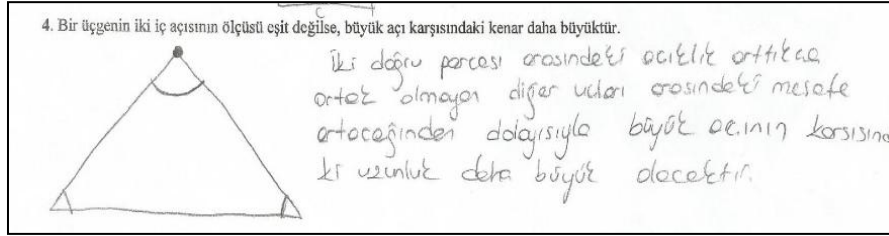 C
4. Bir üçgenin iki iç açısının ölçüsü eşit değilse, büyük açı karşısındaki kenar daha büyüktür.
İki doğru parçası arasındaki açıklık arttıkça
ortak olmayan diğer uçları arasındaki mesafe
artacağından dolayısıyla büyük açının karşısında
ki uzunluk daha büyük olacaktır.